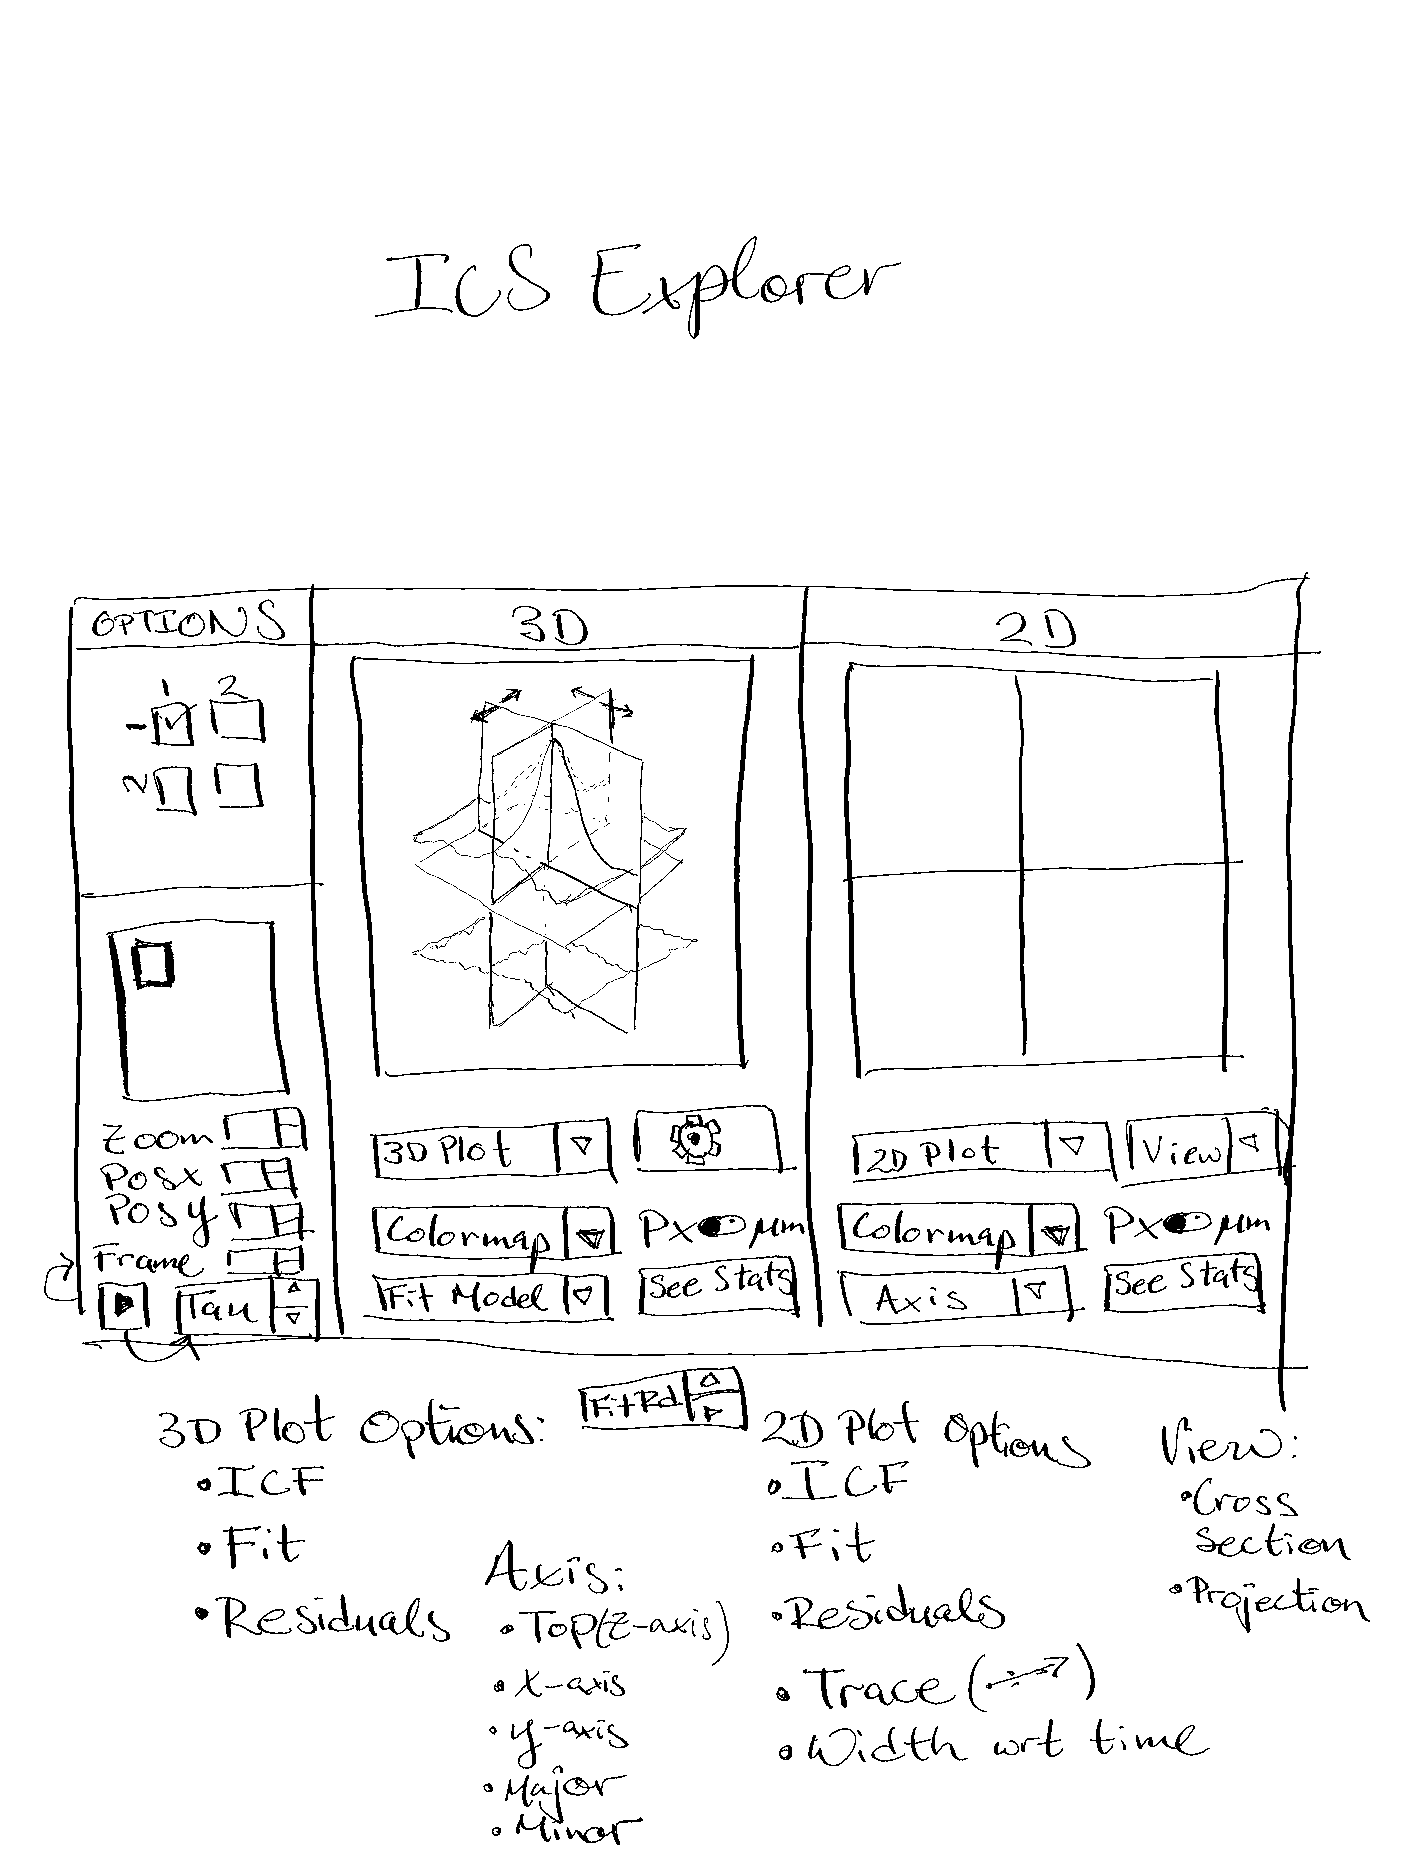 ICS Explorer
OPTIONS
3D
2D
1 2
1
2
Zoom
Posx
Posy
Frame
Tau
3D Plot
Colormap
Px μm
Fit Model
See Stats
2D Plot
View
Colormap
Px μm
Axis
See Stats
Fit Rd
3D Plot Options:
• ICF
• Fit
• Residuals
Axis:
• Top(z-axis)
• x-axis
• y-axis
• Major
• Minor
2D Plot Options
• ICF
• Fit
• Residuals
• Trace ( )
• Width wrt time
View:
• Cross
section
• Projection